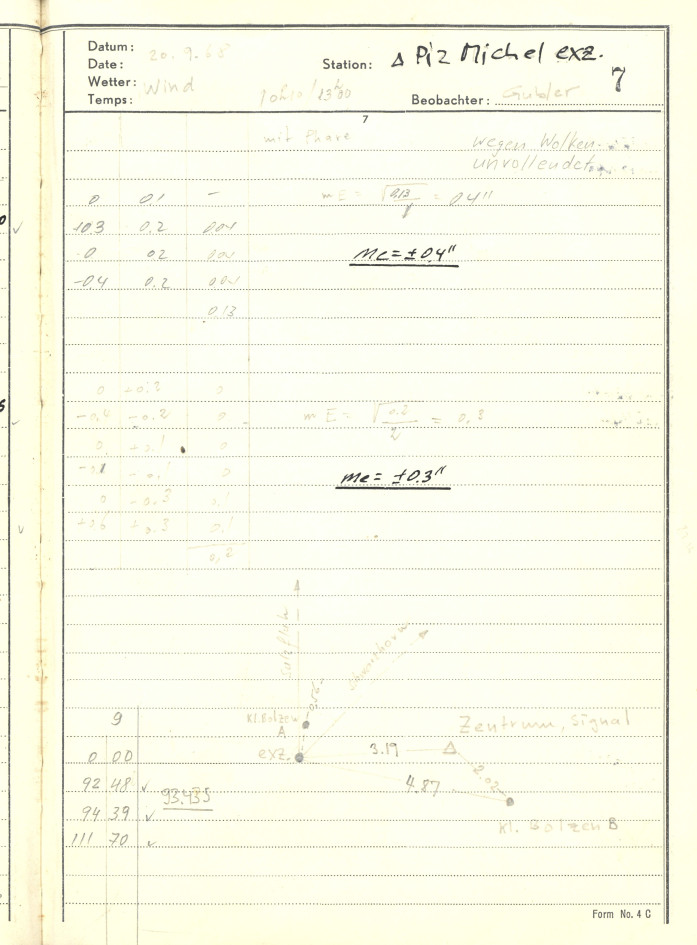 Datum: 20. 9. 63 Station: Δ Piz Michel exz. 7
Date:
Wetter: Wind
Temps: Beobachter: Gubler
7
mit Phare wegen Wolken
unvollendet
0 0.1 -
+0.3 0.2 0.04 mE = = 0.4"
0 0.2 0.04 me = ± 0.4"
-0.4 0.2 0.04
0.13
0 +0.2 0
-0.4 -0.2 0 mE = √0.2 / 2 = 0,3
0 +0.1 0
-0.1 -0.1 0 me = ±0.3"
0 -0.3 0.1
+0.6 +0.3 0.1
0,2
Sulzfluh
9 Kl. Bolzen Zentrum, Signal
A
0 00 exz. 3.19 Δ
92 48 ✓ 93.435 4.87 2.02
94 39 ✓ Kl. Bolzen B
111 70 ✓
Form No. 4 C